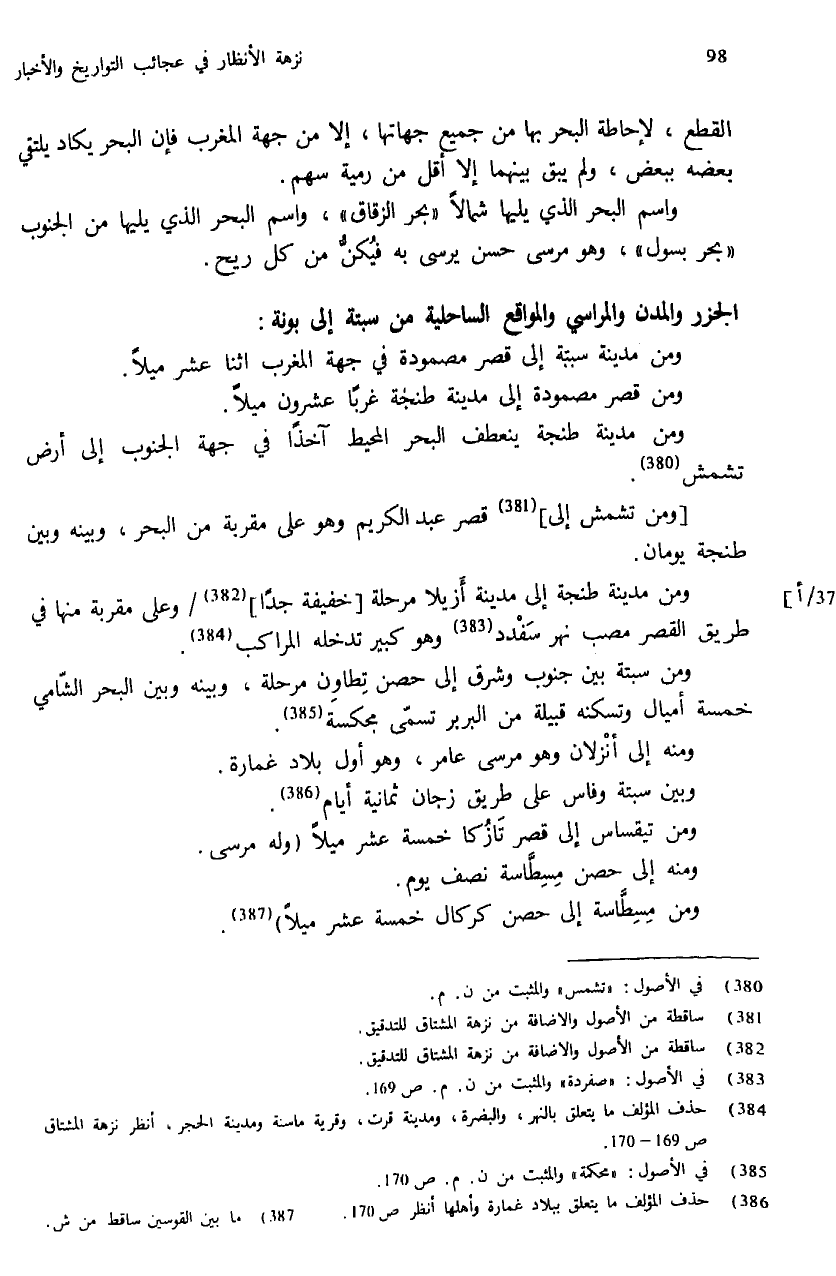 98
نزهة الأنظار في عجائب التواريخ والأخبار
القطع ، لإحاطة البحر بها من جميع جهاتها ، إلا من جهة المغرب فإن البحر يكاد يلتقي
بعضه ببعض ، ولم يبق بينهما إلا أقل من رمية سهم.
واسم البحر الذي يليها شمالاً «بحر الزقاق» ، واسم البحر الذي يليها من الجنوب
«بحر بسول» ، وهو مرسى حسن يرسى به فيُكنُّ من كل ريح.
الجزر والمدن والمراسي والمواقع الساحلية من سبتة إلى بونة :
ومن مدينة سبتة إلى قصر مصمودة في جهة المغرب اثنا عشر ميلاً.
ومن قصر مصمودة إلى مدينة طنجة غربًا عشرون ميلاً.
ومن مدينة طنجة ينعطف البحر المحيط آخذًا في جهة الجنوب إلى أرض
تشمش(380).
[ومن تشمش إلى](381) قصر عبد الكريم وهو على مقربة من البحر ، وبينه وبين
طنجة يومان.
ومن مدينة طنجة إلى مدينة أَزيلا مرحلة [خفيفة جدًا](382) / وعلى مقربة منها في
[37/أ
طريق القصر مصب نهر سَفْدد(383) وهو كبير تدخله المراكب(384).
ومن سبتة بين جنوب وشرق إلى حصن تِطاوِن مرحلة ، وبينه وبين البحر الشّامي
خمسة أميال وتسكنه قبيلة من البربر تسمّى مجكسَة(385).
ومنه إلى أَنْزلان وهو مرسى عامر ، وهو أول بلاد غمارة.
وبين سبتة وفاس على طريق زجان ثمانية أيام(386).
ومن تيقساس إلى قصر تَازُكا خمسة عشر ميلاً (وله مرسى.
ومنه إلى حصن مِسِطَّاسة نصف يوم.
ومن مِسِطَّاسة إلى حصن كركال خمسة عشر ميلاً)(387).
380) في الأصول : «تشمس» والمثبت من ن. م.
381) ساقطة من الأصول والاضافة من نزهة المشتاق للتدقيق.
382) ساقطة من الأصول والاضافة من نزهة المشتاق للتدقيق.
383) في الأصول : «صفردة» والمثبت من ن. م. ص 169.
384) حذف المؤلف ما يتعلق بالنهر ، والبصرة ، ومدينة قرت ، وقرية ماسنة ومدينة الحجر ، أنظر نزهة المشتاق
ص 169 – 170.
385) في الأصول : «محكمة» والمثبت من ن. م. ص 170.
386) حذف المؤلف ما يتعلق ببلاد غمارة وأهلها أنظر ص 170. 387) ما بين القوسين ساقط من ش.